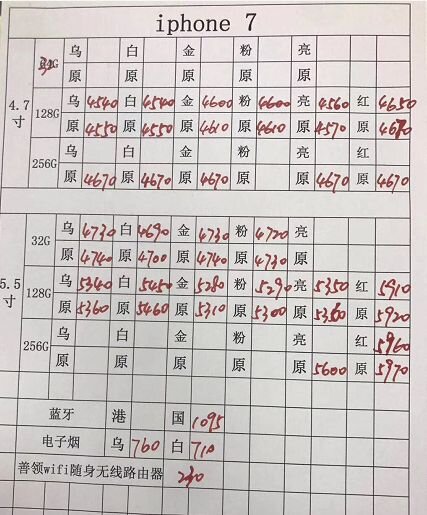 iphone 7
32G 乌 白 金 粉 亮
原 原 原 原 原
4.7寸 128G 乌 4540 白 4540 金 4600 粉 4600 亮 4560 红 4650
原 4550 原 4550 原 4610 原 4610 原 4570 原 4670
256G 乌 白 金 粉 亮 红
原 4670 原 4670 原 4670 原 原 4670 原 4670
32G 乌 4730 白 4690 金 4730 粉 4720 亮
原 4740 原 4700 原 4740 原 4730 原
5.5寸 128G 乌 5340 白 5450 金 5280 粉 5290 亮 5350 红 5910
原 5360 原 5460 原 5310 原 5300 原 5360 原 5920
256G 乌 白 金 粉 亮 红 5960
原 原 原 原 原 5600 原 5970
蓝牙 港 国 1095
电子烟 乌 760 白 710
善领wifi随身无线路由器 230